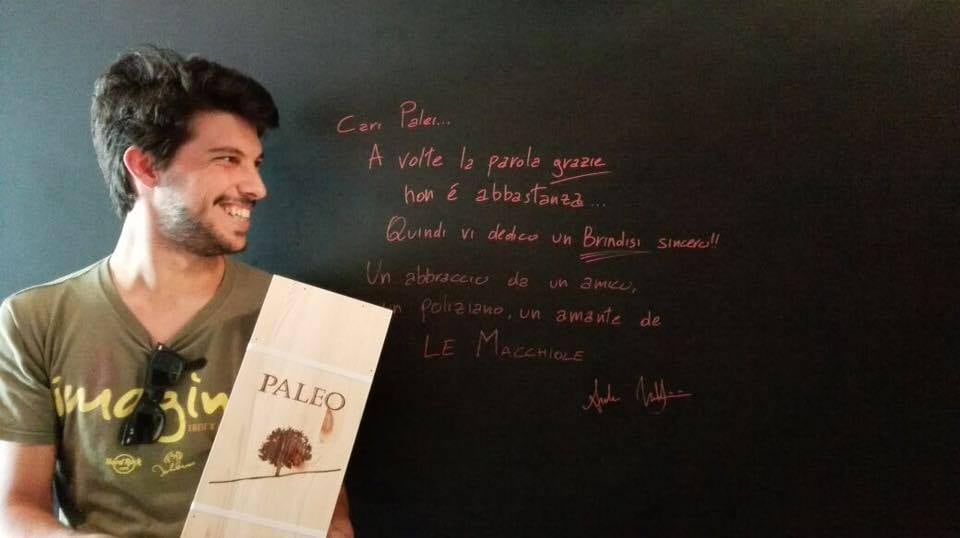 Cari Palei...
A volte la parola grazie
non é abbastanza...
Quindi vi dedico un Brindisi sincero!!
Un abbraccio da un amico,
un poliziano, un amante de
LE MACCHIOLE
imagin
Hard Rock
PALEO